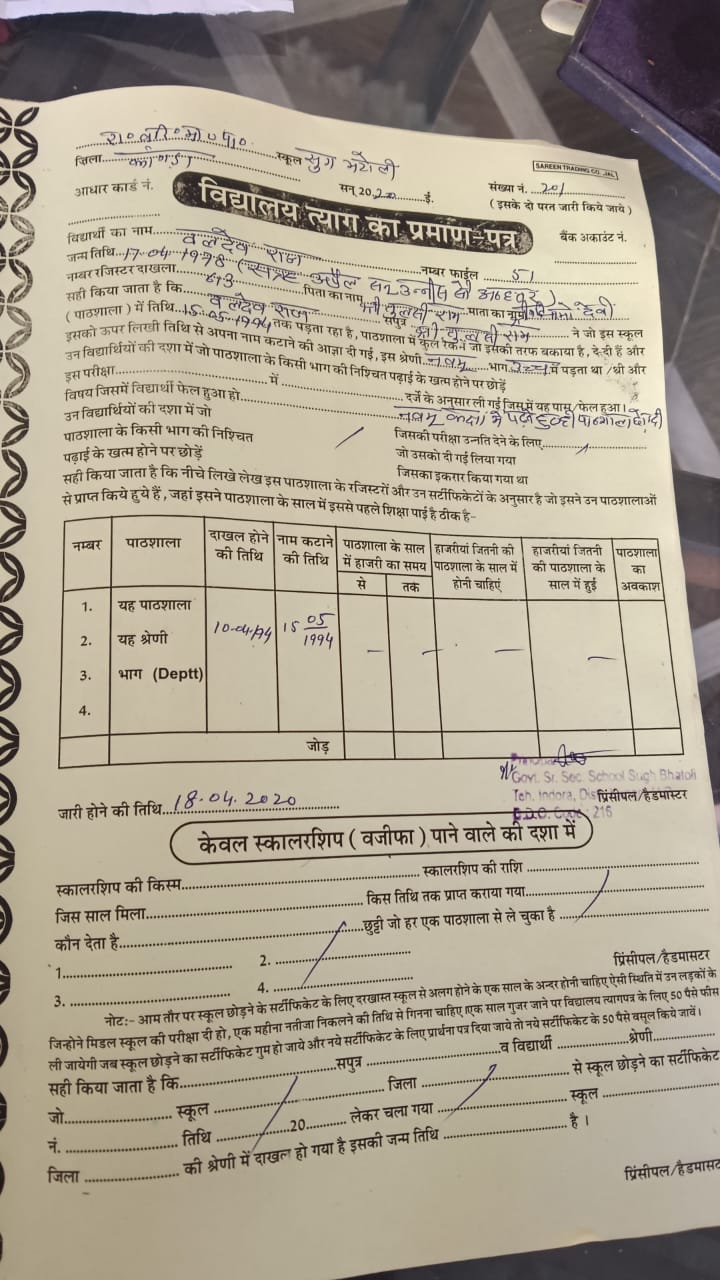 रा० व० मा० पा०
जिला कांगड़ा स्कूल सुग भटोली
SAREEN TRADING CO. JAL.
आधार कार्ड नं. सन् 2020 ई. संख्या नं. 201
(इसके दो परत जारी किये जाये)
विद्यालय त्याग का प्रमाण-पत्र
बैंक अकाउंट नं.
विद्यार्थी का नाम बलदेव राज
जन्म तिथि 17-04-1978 (सत्रह अप्रैल सन उन्नीस सौ अठहत्तर)
नम्बर रजिस्टर दाखला नम्बर फाईल 51
सही किया जाता है कि बलदेव राज पिता का नाम श्री तुलसी राम माता का नाम देवी
(पाठशाला) में तिथि 15-05-1994 तक पड़ता रहा है, सपुत्र श्री तुलसी राम ने जो इस स्कूल
पाठशाला में कुल रकने जो इसकी तरफ बकाया है, दे-दी हैं और
इसको ऊपर लिखी तिथि से अपना नाम कटाने की आज्ञा दी गई, इस श्रेणी नवम् भाग उच्च में पड़ता था / थी और
उन विद्यार्थियों की दशा में जो पाठशाला के किसी भाग की निश्चित पढ़ाई के खत्म होने पर छोड़ें
इस परीक्षा में दर्जे के अनुसार ली गई जिस में यह पास / फेल हुआ।
विषय जिसमें विद्यार्थी फेल हुआ हो नवम् कक्षा में पढ़ते हुए पाठशाला छोड़ दी
उन विद्यार्थियों की दशा में जो
पाठशाला के किसी भाग की निश्चित जिसकी परीक्षा उन्नति देने के लिए
पढ़ाई के खत्म होने पर छोड़ें जो उसको दी गई लिया गया
जिसका इकरार किया गया था
सही किया जाता है कि नीचे लिखे लेख इस पाठशाला के रजिस्टरों और उन सर्टीफिकेटों के अनुसार है जो इसने उन पाठशालाओं
से प्राप्त किये हुये हैं, जहां इसने पाठशाला के साल में इससे पहले शिक्षा पाई है ठीक है-
नम्बर पाठशाला दाखल होने की तिथि नाम कटाने की तिथि पाठशाला के साल में हाजरी का समय हाजरीयां जितनी की पाठशाला के साल में होनी चाहिएं हाजरीयां जितनी की पाठशाला के साल में हुई पाठशाला का अवकाश
से तक
1. यह पाठशाला
2. यह श्रेणी 10-04-94 15 05/1994 – – – –
3. भाग (Deptt)
4.
जोड़
Principal
Govt. Sr. Sec. School Sugh Bhatoli
Teh. Indora, Dis प्रिंसीपल/हैडमास्टर
D.D.O. Code - 216
जारी होने की तिथि 18.04.2020
केवल स्कालरशिप (वजीफा) पाने वाले की दशा में
स्कालरशिप की किस्म स्कालरशिप की राशि
जिस साल मिला किस तिथि तक प्राप्त कराया गया
कौन देता है छुट्टी जो हर एक पाठशाला से ले चुका है
1. 2.
3. 4. प्रिंसीपल/हैडमासटर
नोट:- आम तौर पर स्कूल छोड़ने के सर्टीफिकेट के लिए दरखास्त स्कूल से अलग होने के एक साल के अन्दर होनी चाहिए ऐसी स्थिति में उन लड़कों के
जिन्होने मिडल स्कूल की परीक्षा दी हो, एक महीना नतीजा निकलने की तिथि से गिनना चाहिए। एक साल गुजर जाने पर विद्यालय त्यागपत्र के लिए 50 पैसे फीस
ली जायेगी जब स्कूल छोड़ने का सर्टीफिकेट गुम हो जाये और नये सर्टीफिकेट के लिए प्रार्थना पत्र दिया जाये तो नये सर्टीफिकेट के 50 पैसे वसूल किये जायें।
सही किया जाता है कि सपुत्र व विद्यार्थी श्रेणी
जो स्कूल जिला से स्कूल छोड़ने का सर्टीफिकेट
नं. तिथि 20 लेकर चला गया स्कूल
जिला की श्रेणी में दाखल हो गया है इसकी जन्म तिथि है।
प्रिंसीपल/हैडमास्ट